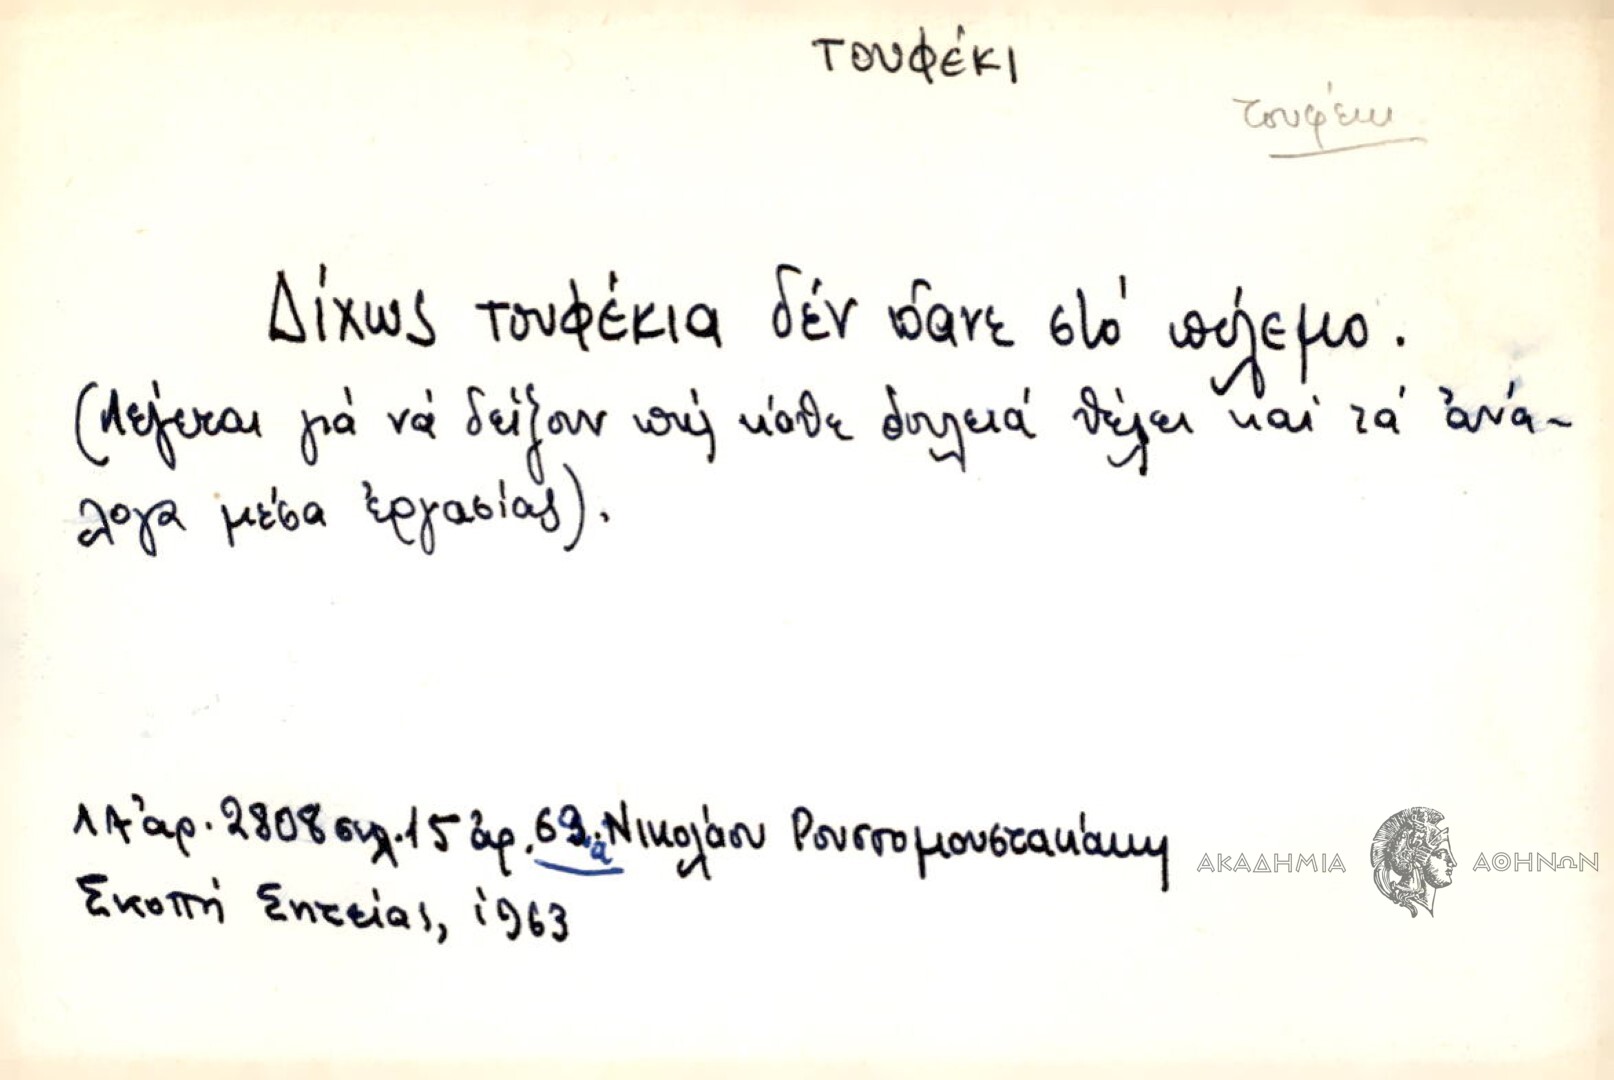 ΤΟΥΦΈΚΙ
τουφέκι
Δίχως τουφέκια δέν πᾶνε στό πόλεμο.
(Λέγεται γιά νά δείξουν πώς κάθε δουλειά θέλει καί τά ἀνά-
λογα μέσα ἐργασίας).
ΛΑ ἀρ. 2808 σελ. 15 ἀρ. 69α. Νικολάου Ρουσσομουστακάκη
Σκοπή Σητείας, 1963
ΑΚΑΔΗΜΙΑ ΑΘΗΝΩΝ